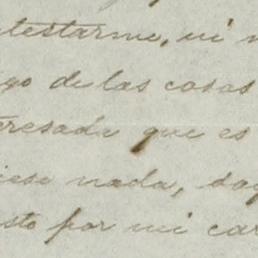 testarme, ni n
go de las cosas
eresada que es
iese nada, day
sto por mi car